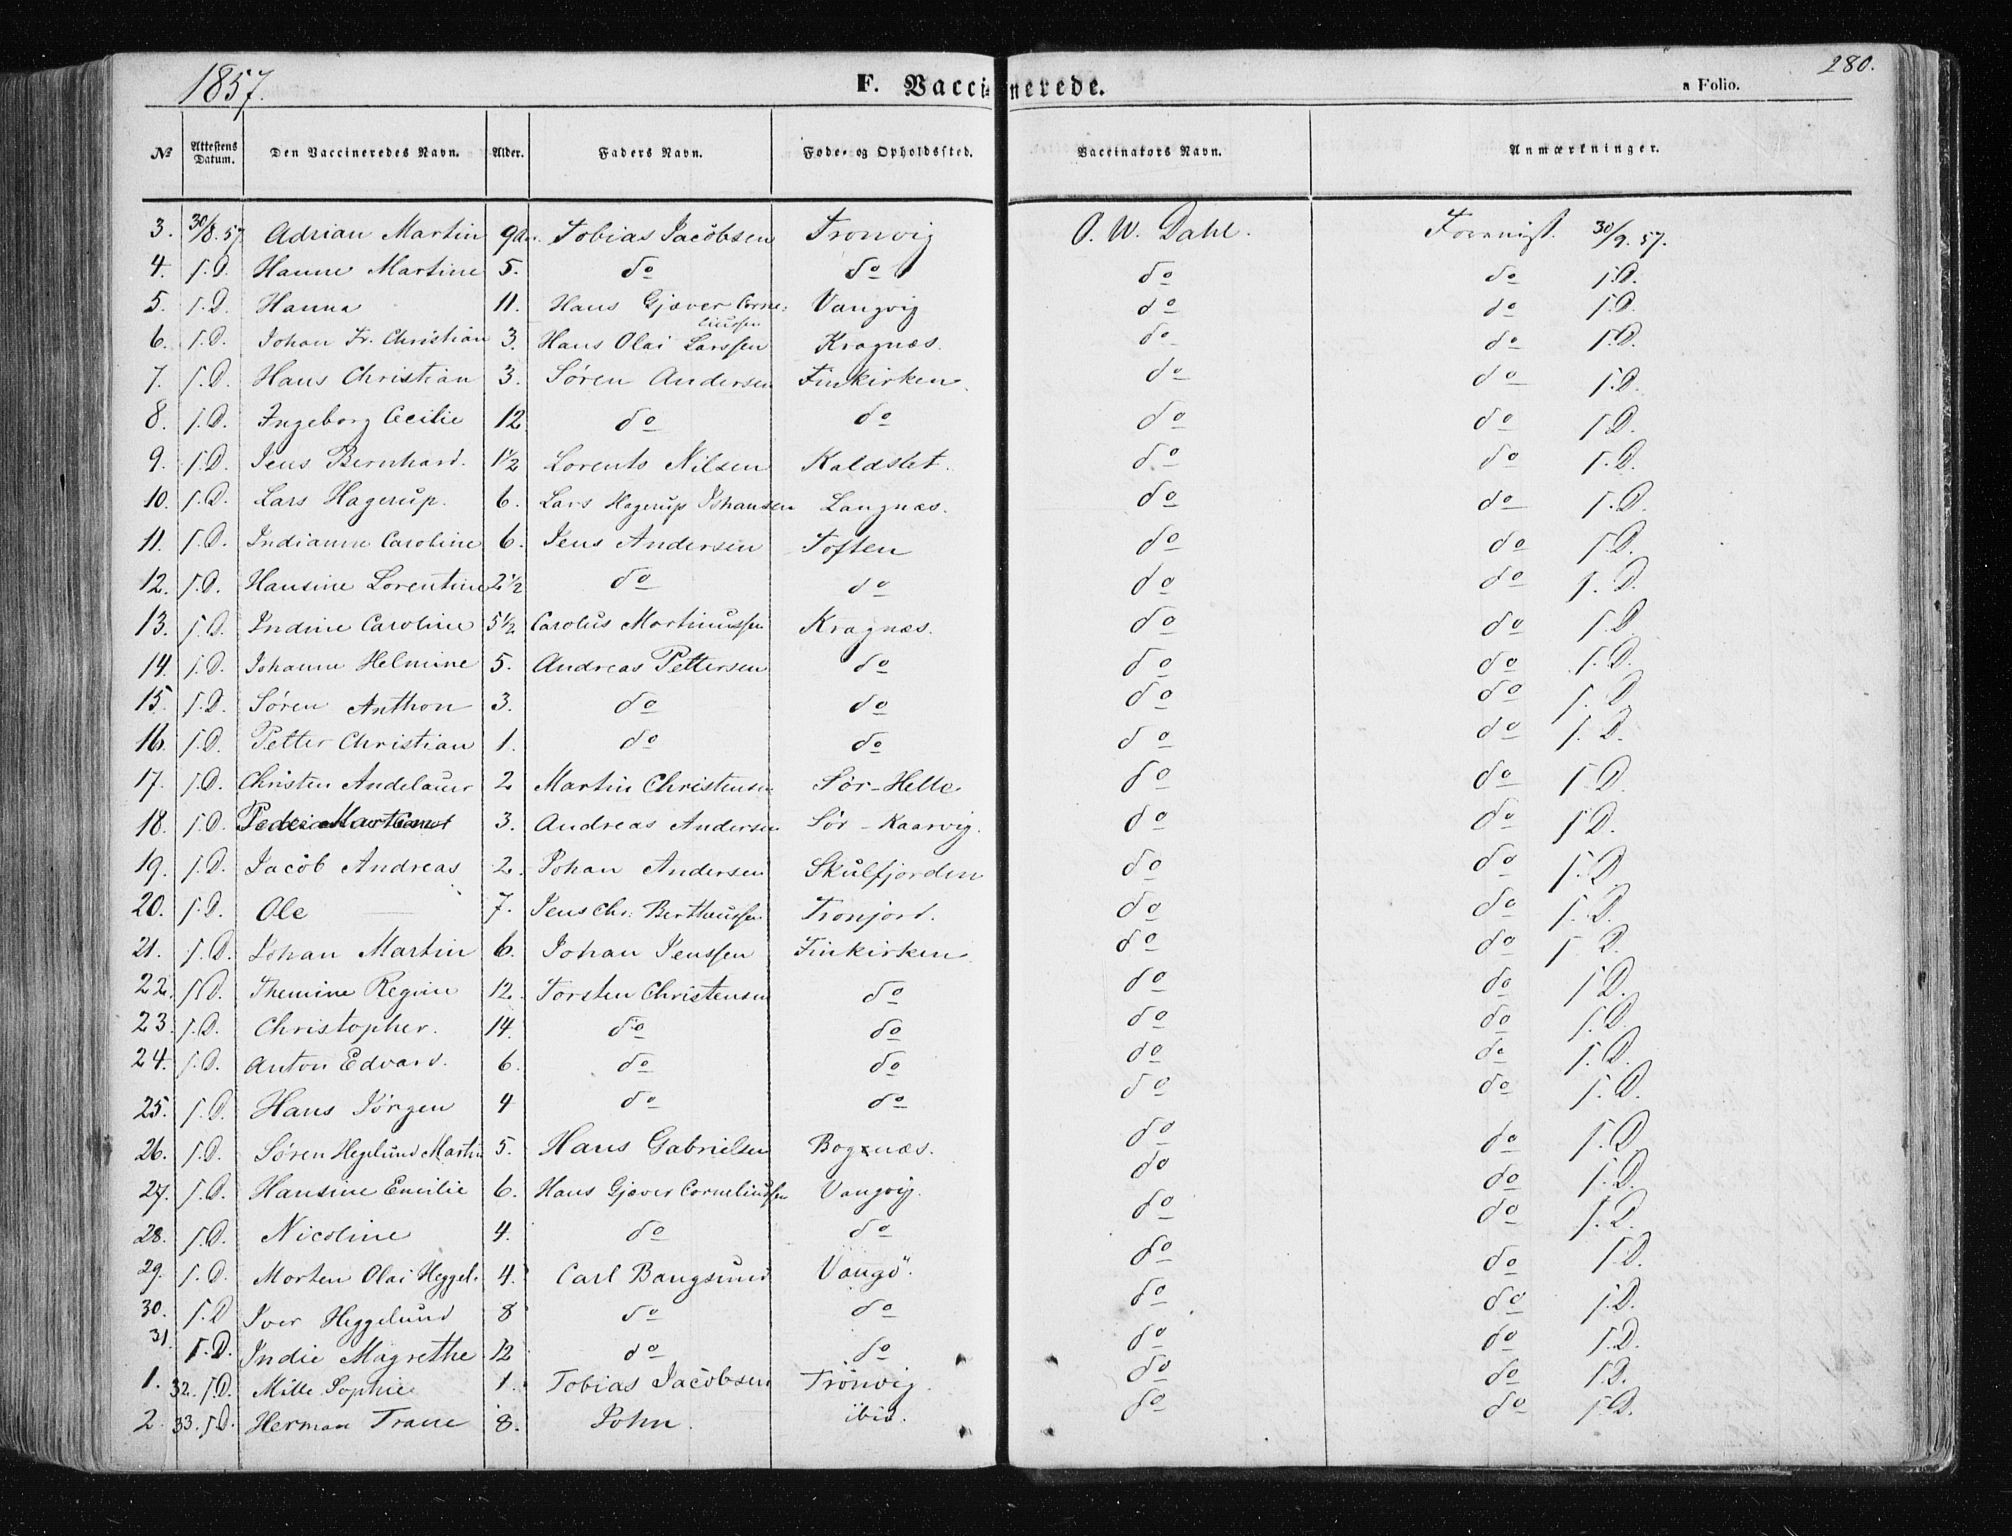 1857.
F. Vaccinerede.
a Folio.
280.
№ Attestens Datum. Den Vaccineredes Navn. Alder. Faders Navn. Føde- og Opholdssted. Vaccinators Navn. Anmærkninger.
3. 30/8.57 Adrian Martin 9 Tobias Jacobsen Tronvig O. W. Dahl. 30/9.57.
4. s.D. Hanne Martine 5. do do do do s.D.
5. s.D. Hanna 11. Hans Gjæver Corneliussen Vangvig do do s.D.
6. s.D. Johan Fr. Christian 3. Hans Olai Larssen Kragnæs. do do s.D.
7. s.D. Hans Christian 3. Søren Andersen Finkirken. do do s.D.
8. s.D. Ingeborg Cecilie 12. do do do do s.D.
9. s.D. Jens Bernhard. 1½ Lorents Nilsen Kaldslet. do do s.D.
10. s.D. Lars Hagerup. 6. Lars Hagerup Johansen Langnæs. do do s.D.
11. s.D. Indianne Caroline 6. Jens Andersen Toften do do s.D.
12. s.D. Hansine Lorentine 2½ do do do do s.D.
13. s.D. Indine Caroline 5½ Carolus Martinussen Kragnæs. do do s.D
14. s.D. Johanne Helmine 5. Andreas Pettersen do do do s.D.
15. s.D. Søren Anthon 3. do do do do s.D
16. s.D. Petter Christian 1. do do do do s.D.
17. s.D. Christen Andelauer 2 Martin Christensen Sør-Helle do do s.D.
18. s.D. 3. Andreas Andersen Sør-Kaarvig. do do s.D.
19. s.D. Jacob Andreas 2. Johan Andersen Skulfjorden do do s.D.
20. s.D. Ole 7. Jens Chr: Bertheussen Tronjord. do do s.D.
21. s.D. Johan Martin 6. Johan Jenssen Finkirken do do s.D.
22. s.D. Themine Regine 12. Torsten Christensen do do do s.D.
23. s.D. Christopher. 14. do do do do s.D.
24. s.D. Anton Edvard. 6. do do do do s.D.
25. s.D. Hans Jørgen 4 do do do do s.D.
26. s.D. Søren Heglund Martin 5. Hans Gabrielsen Bognæs. do do s.D.
27. s.D. Hansine Emilie 6. Hans Gjæver Corneliussen Vangvig. do do s.D.
28. s.D. Nicoline 4. do do do do s.D.
29. s.D. Morten Olai Heggel. 4. Carl Bangsund Vangö. do do s.D.
30. s.D Iver Heggelund 8 do do do do s.D.
31. s.D. Indie Magrethe 12 do do do do s.D.
1. 32. s.D. Mille Sophie 1. Tobias Jacobsen Tronvig. do do s.D.
2. 33. s.D. Herman Trane 8. John. ibid. do do s.D.